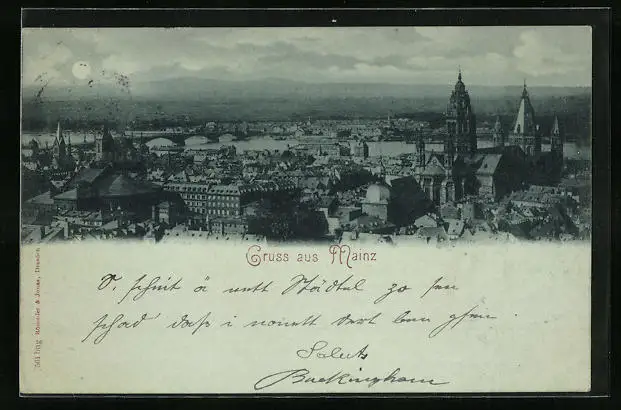 Gruss aus Mainz
S' scheint ä nett Städtel zo sen
schad' daß i nontt dort ben gsen.
Salut
Buckingham
Römmler & Jonas, Dresden